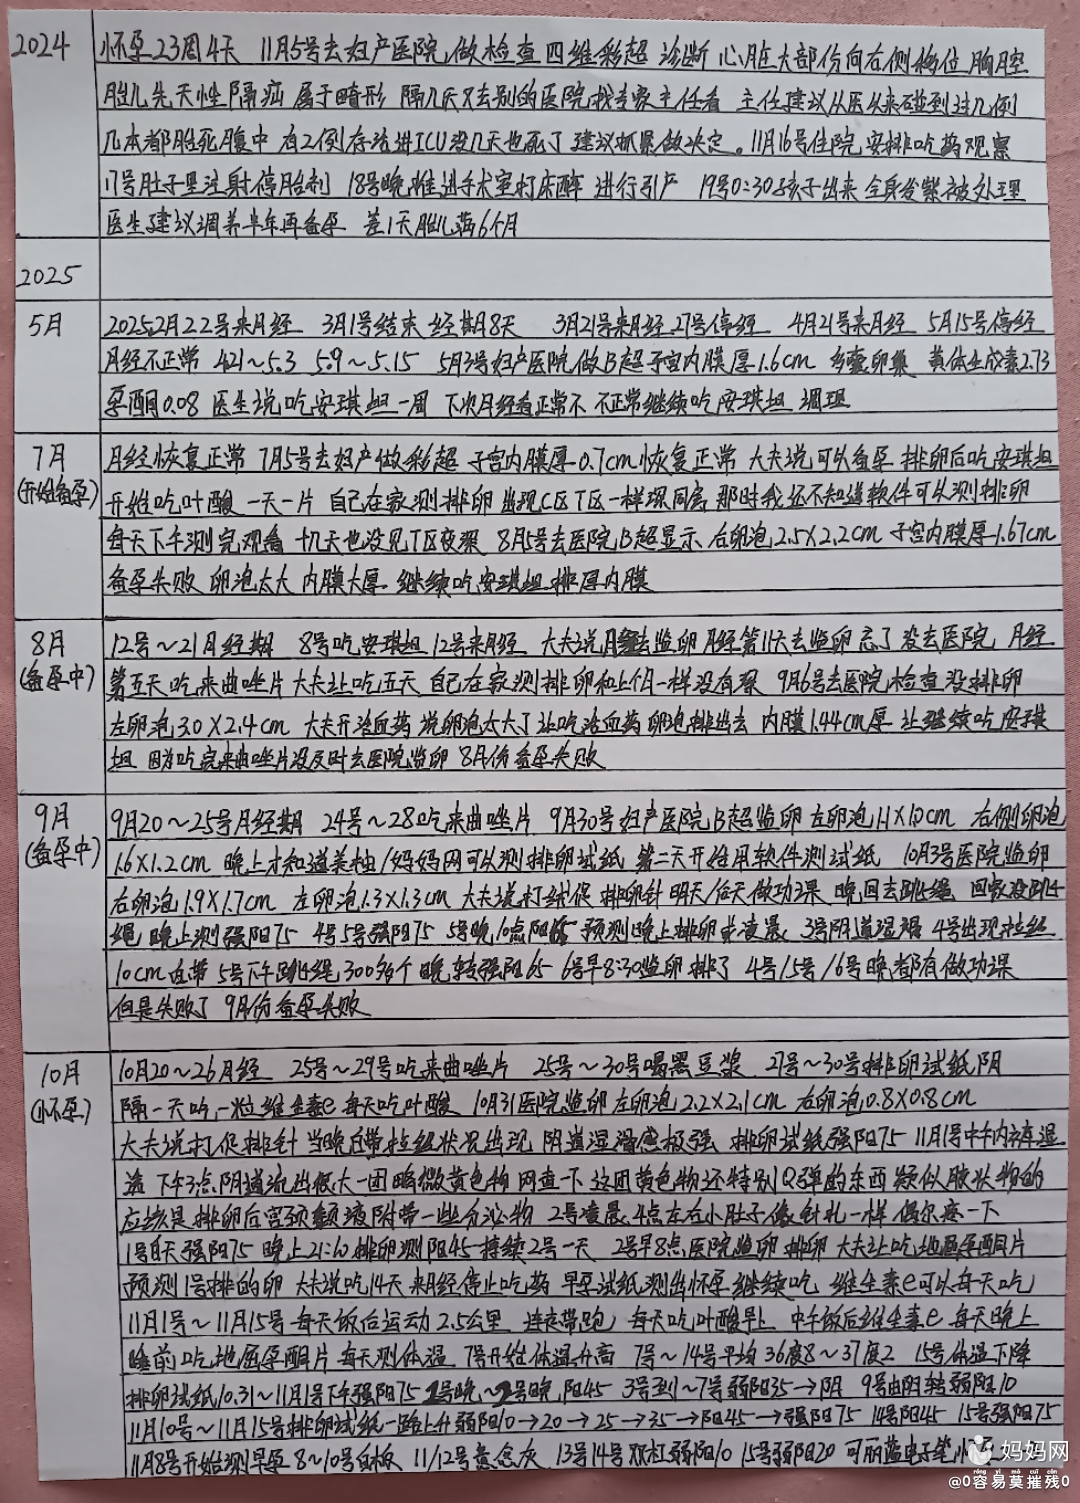 2024
怀孕23周4天 11月5号去妇产医院做检查四维彩超 诊断 心脏大部份向右侧移位 胸腔
胎儿先天性隔疝 属于畸形 隔几天又去别的医院找专家主任看 主任建议从医以来碰到过几例
几本都胎死腹中 有2例存活进ICU没几天也死了 建议抓紧做决定。11月16号住院 安排吃药观察
17号肚子里注射停胎剂 18号晚推进手术室打麻醉 进行引产 19号0:30孩子出来 全身发紫被处理
医生建议调养半年再备孕 差1天胎儿满6个月
2025
5月
2025.2月22号来月经 3月1号结束 经期8天 3月21号来月经 27号停经 4月21号来月经 5月15号停经
月经不正常 4.21～5.3 5.9～5.15 5月3号妇产医院做B超子宫内膜厚1.6cm 多囊卵巢 黄体生成素2.73
孕酮0.08 医生说吃安琪坦一周 下次月经看正常不 不正常继续吃安琪坦 调理
7月
(开始备孕)
月经恢复正常 7月5号去妇产做彩超 子宫内膜厚0.7cm恢复正常 大夫说可以备孕 排卵后吃安琪坦
开始吃叶酸 一天一片 自己在家测排卵 出现C区T区一样深同房 那时我还不知道软件可以测排卵
每天下午测完观看 十几天也没见T区变深 8月5号去医院B超显示 右卵泡2.5X2.2cm 子宫内膜厚1.67cm
备孕失败 卵泡太大 内膜太厚 继续吃安琪坦排厚内膜
8月
(备孕中)
12号～21月经期 8号吃安琪坦 12号来月经 大夫说去监卵 月经第11天去监卵忘了 没去医院 月经
第五天吃来曲唑片 大夫让吃五天 自己在家测排卵和上个月一样没有深 9月6号去医院检查没排卵
左卵泡3.0X2.4cm 大夫开活血药 说卵泡太大了让吃活血药 卵泡排出去 内膜1.44cm厚 让继续吃安琪
坦 因为吃完来曲唑片没及时去医院监卵 8月份备孕失败
9月
(备孕中)
9月20～25号月经期 24号～28吃来曲唑片 9月30号妇产医院B超监卵 左卵泡1.1X1.0cm 右侧卵泡
1.6X1.2cm 晚上才知道美柚/妈妈网可以测排卵试纸 第二天开始用软件测试纸 10月3号医院监卵
右卵泡1.9X1.7cm 左卵泡1.3X1.3cm 大夫说打绒促 排卵针 明天/后天做功课 晚回去跳绳 回家没跳
绳 晚上测强阳75 4号5号强阳75 5号晚10点阳 预测晚上排卵或凌晨 3号阴道湿润 4号出现拉丝
10cm白带 5号下午跳绳300多个 晚转强阳65 6号早8:30监卵排了 4号/5号/6号晚都有做功课
但是失败了 9月份备孕失败
10月
(怀孕)
10月20～26月经 25号～29号吃来曲唑片 25号～30号喝黑豆浆 27号～30号排卵试纸阴
隔一天吃一粒维生素e 每天吃叶酸 10月31医院监卵左卵泡2.2X2.1cm 右卵泡0.8X0.8cm
大夫说打促排针 当晚白带拉丝状况出现 阴道湿滑感极强 排卵试纸强阳75 11月1号中午内裤湿
漉 下午3点阴道流出很大一团略微黄色物 网查一下 这团黄色物还特别Q弹的东西 疑似胶状物的
应该是排卵后宫颈黏液附带一些分泌物 2号凌晨4点左右小肚子像针扎一样 偶尔疼一下
1号白天强阳75 晚上21:10排卵测阳45 持续2号一天 2号早8点医院监卵 排卵 大夫让吃地屈孕酮片
预测1号排的卵 大夫说吃14天 来月经停止吃药 早孕试纸测出怀孕继续吃 维生素e可以每天吃
11月1号～11月15号每天饭后运动2.5公里 连走带跑 每天吃叶酸早上 中午饭后维生素e 每天晚上
睡前吃地屈孕酮片 每天测体温 7号开始体温升高 7号～14号平均36度8～37度2 15号体温下降
排卵试纸10.31～11月1号下午强阳75 1号晚～2号晚阳45 3号到～7号弱阳35→阴 9号由阴转弱阳10
11月10号～11月15号排卵试纸一路上升弱阳10→20→25→35→阳45→强阳75 14号阳45 15号强阳75
11月8号开始测早孕 8～10号白板 11/12号意念灰 13号14号双杠弱阳10 15号弱阳20 可丽蓝电子笔
妈妈网
@0容易莫摧残0